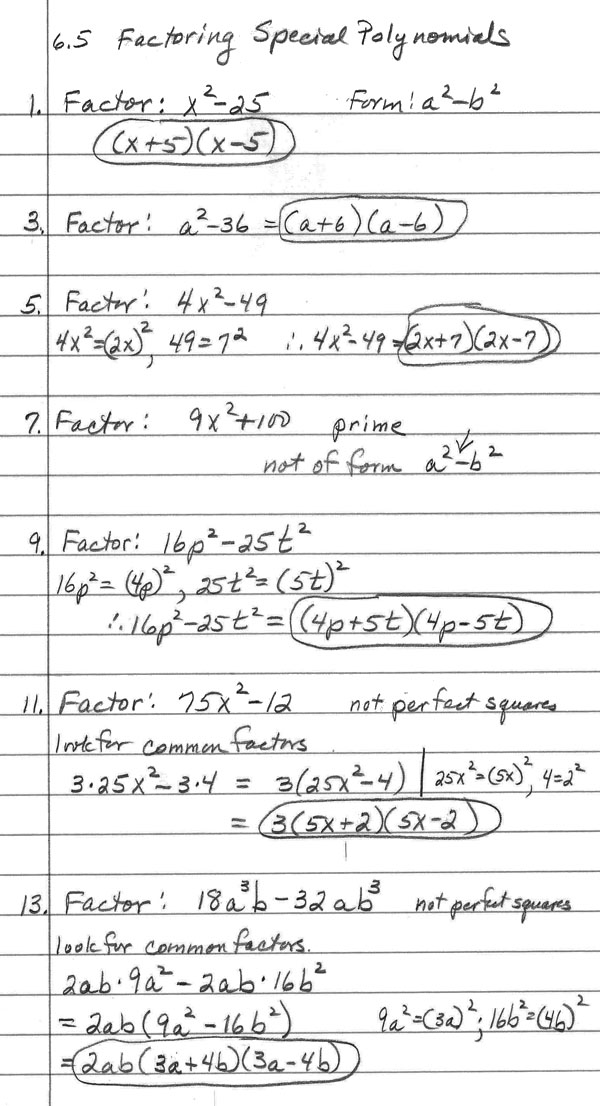 6.5 Factoring Special Polynomials
1. Factor: x²-25 Form: a²-b²
(x+5)(x-5)
3. Factor: a²-36 = (a+6)(a-6)
5. Factor: 4x²-49
4x²=(2x)², 49=7² ∴ 4x²-49=(2x+7)(2x-7)
7. Factor: 9x²+100 prime
not of form a²-b²
9. Factor: 16p²-25t²
16p²=(4p)², 25t²=(5t)²
∴ 16p²-25t²=(4p+5t)(4p-5t)
11. Factor: 75x²-12 not perfect squares
look for common factors
3·25x²-3·4 = 3(25x²-4) | 25x²=(5x)², 4=2²
= 3(5x+2)(5x-2)
13. Factor: 18a³b-32ab³ not perfect squares
look for common factors.
2ab·9a²-2ab·16b²
= 2ab(9a²-16b²) 9a²=(3a)²; 16b²=(4b)²
= 2ab(3a+4b)(3a-4b)